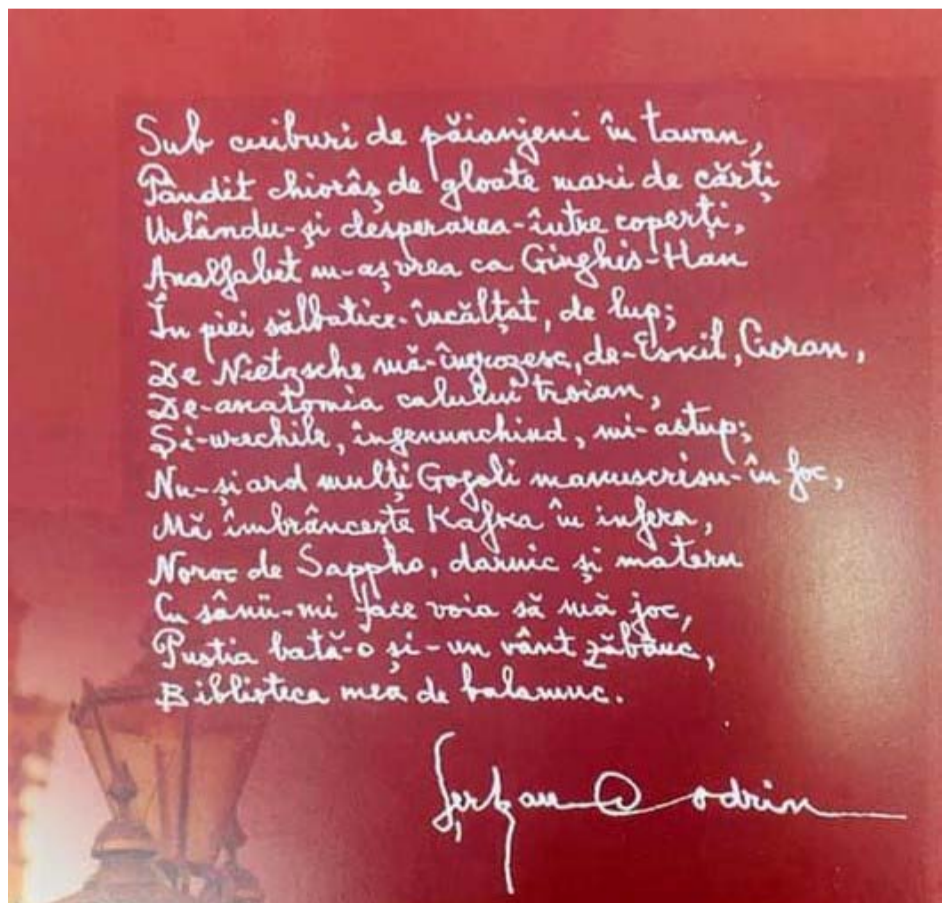 Sub cuiburi de păianjeni în tavan,
Pândit chiorâş de gloate mari de cărţi
Urlându-şi desperarea-între coperţi,
Analfabet m-aş vrea ca Ginghis-Han
În piei sălbatice-încălţat, de lup;
De Nietzsche mă-îngrozesc, de-Eschil, Cioran,
De-anatomia calului troian,
Şi-urechile, îngenunchind, mi-astup;
Nu-şi ard mulţi Gogoli manuscrisu-în foc,
Mă îmbrânceşte Kafka în infern,
Noroc de Sappho, darnic şi matern
Cu sânii-mi face voia să mă joc,
Pustia bată-o şi-un vânt zăbauc,
Biblioteca mea de balamuc.
Şerban Codrin